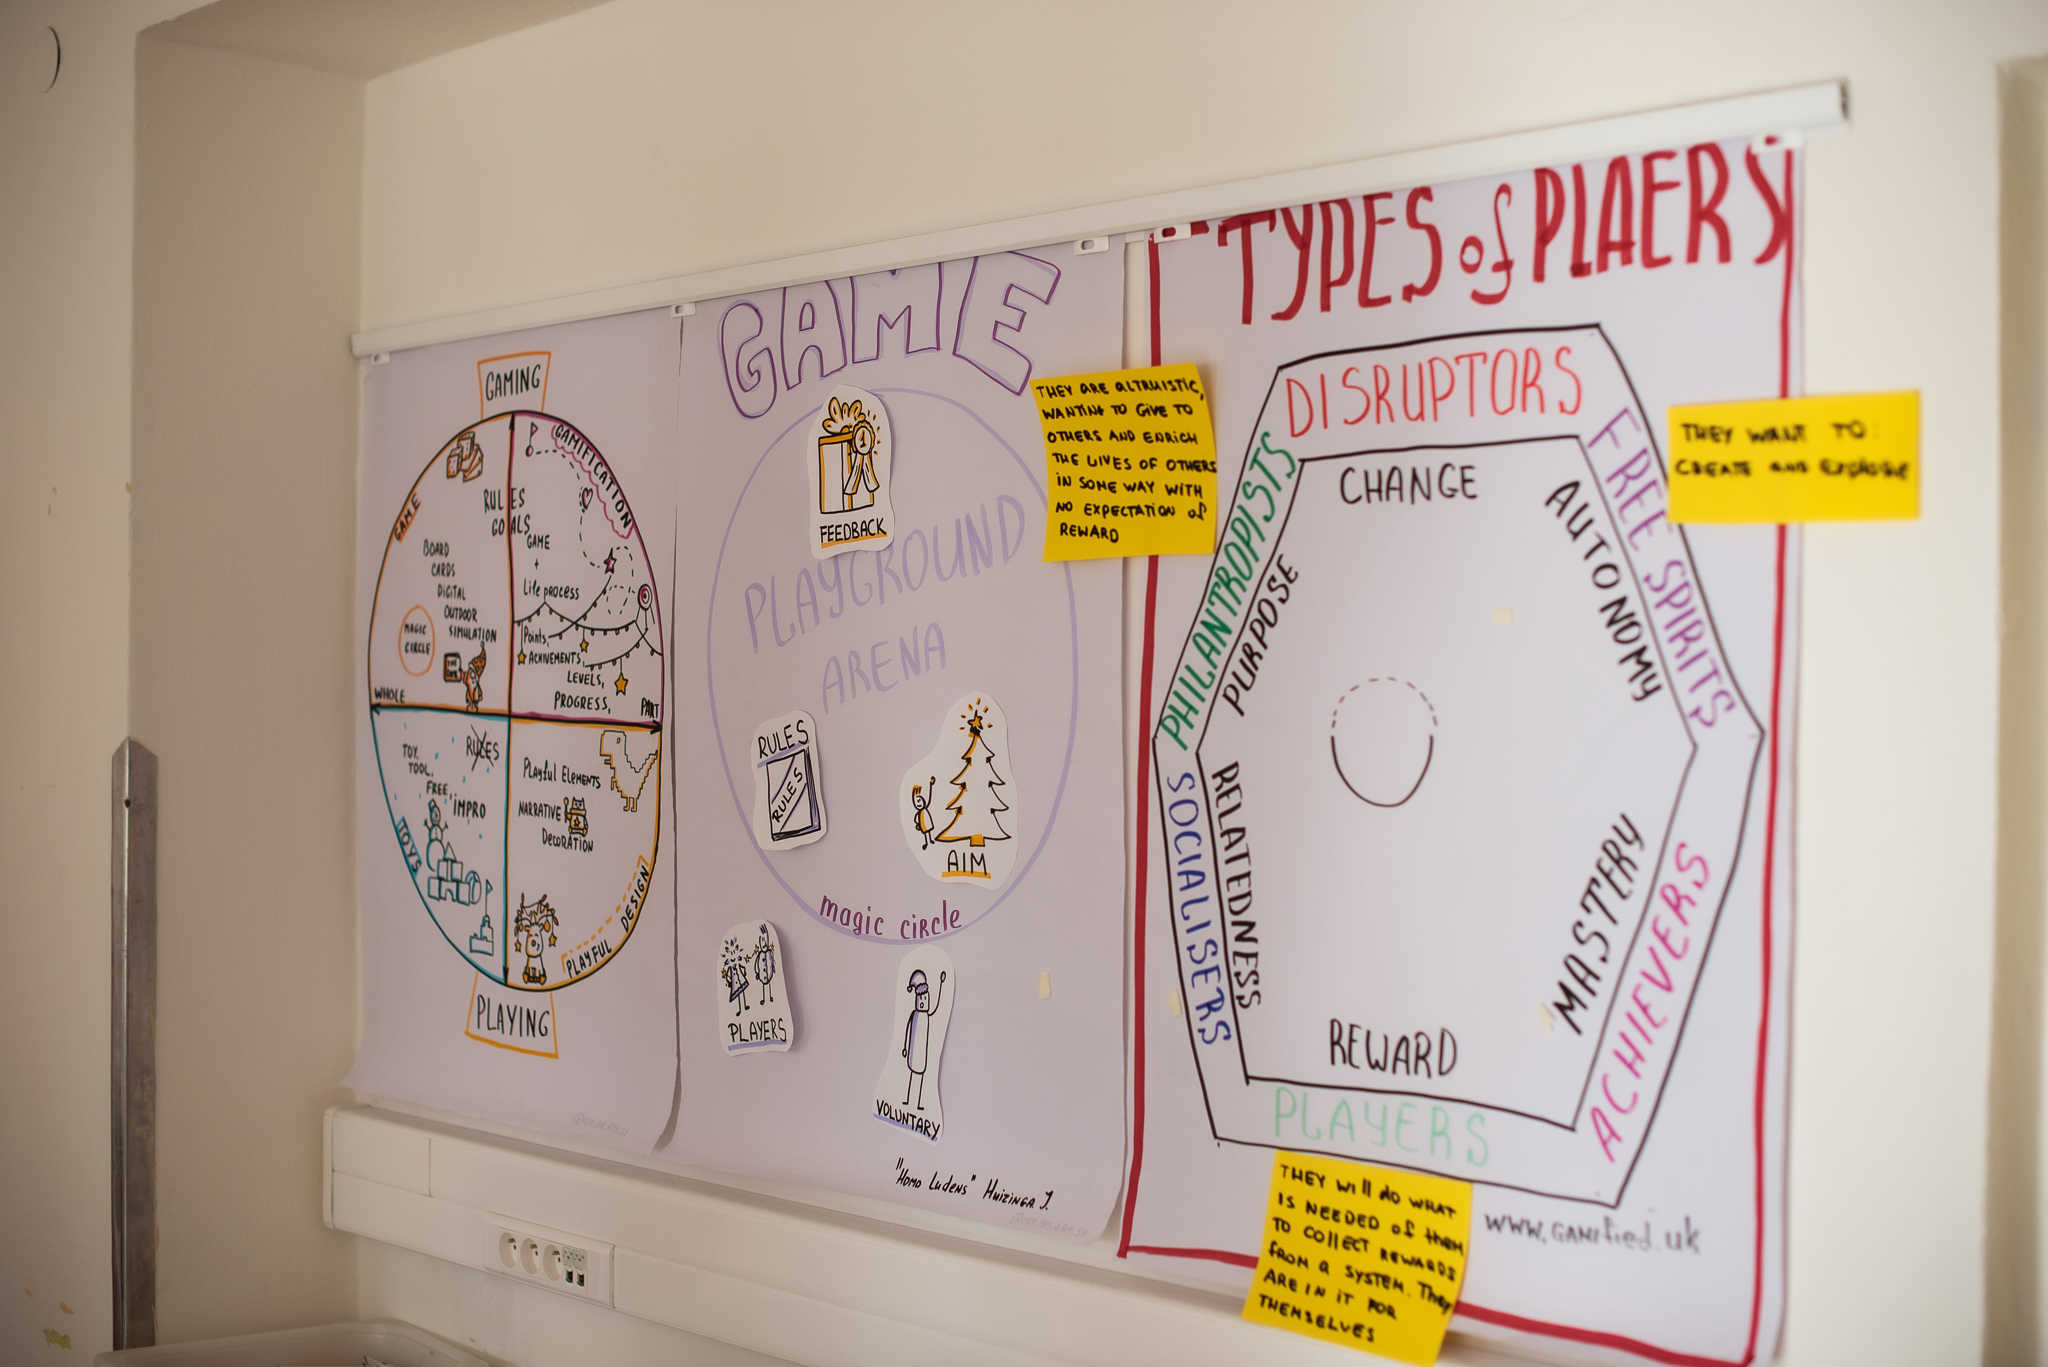 GAMING
GAME
GAMIFICATION
RULES
GOALS
BOARD
CARDS
DIGITAL
OUTDOOR
SIMULATION
MAGIC
CIRCLE
GAME
+
Life process
Points,
ACHIVEMENTS,
LEVELS,
PROGRESS,
WHOLE
PART
TOY,
TOOL,
FREE,
IMPRO
RULES
TOYS
Playful Elements
NARRATIVE
DECORATION
PLAYFUL DESIGN
PLAYING
GAME
FEEDBACK
PLAYGROUND
ARENA
RULES
RULES
AIM
magic circle
PLAYERS
VOLUNTARY
"Homo Ludens" Huizinga J.
THEY ARE ALTRUISTIC,
WANTING TO GIVE TO
OTHERS AND ENRICH
THE LIVES OF OTHERS
IN SOME WAY WITH
NO EXPECTATION of
REWARD
TYPES of PLAERS
DISRUPTORS
CHANGE
FREE SPIRITS
AUTONOMY
THEY WANT TO:
CREATE AND
PHILANTROPISTS
PURPOSE
SOCIALISERS
RELATEDNESS
MASTERY
ACHIEVERS
REWARD
PLAYERS
THEY Will do WHAT
IS NEEDED of them
TO COLLECT REWARDS
from a SYSTEM. They
ARE IN IT FOR
THEMSELVES
www.gamified.uk